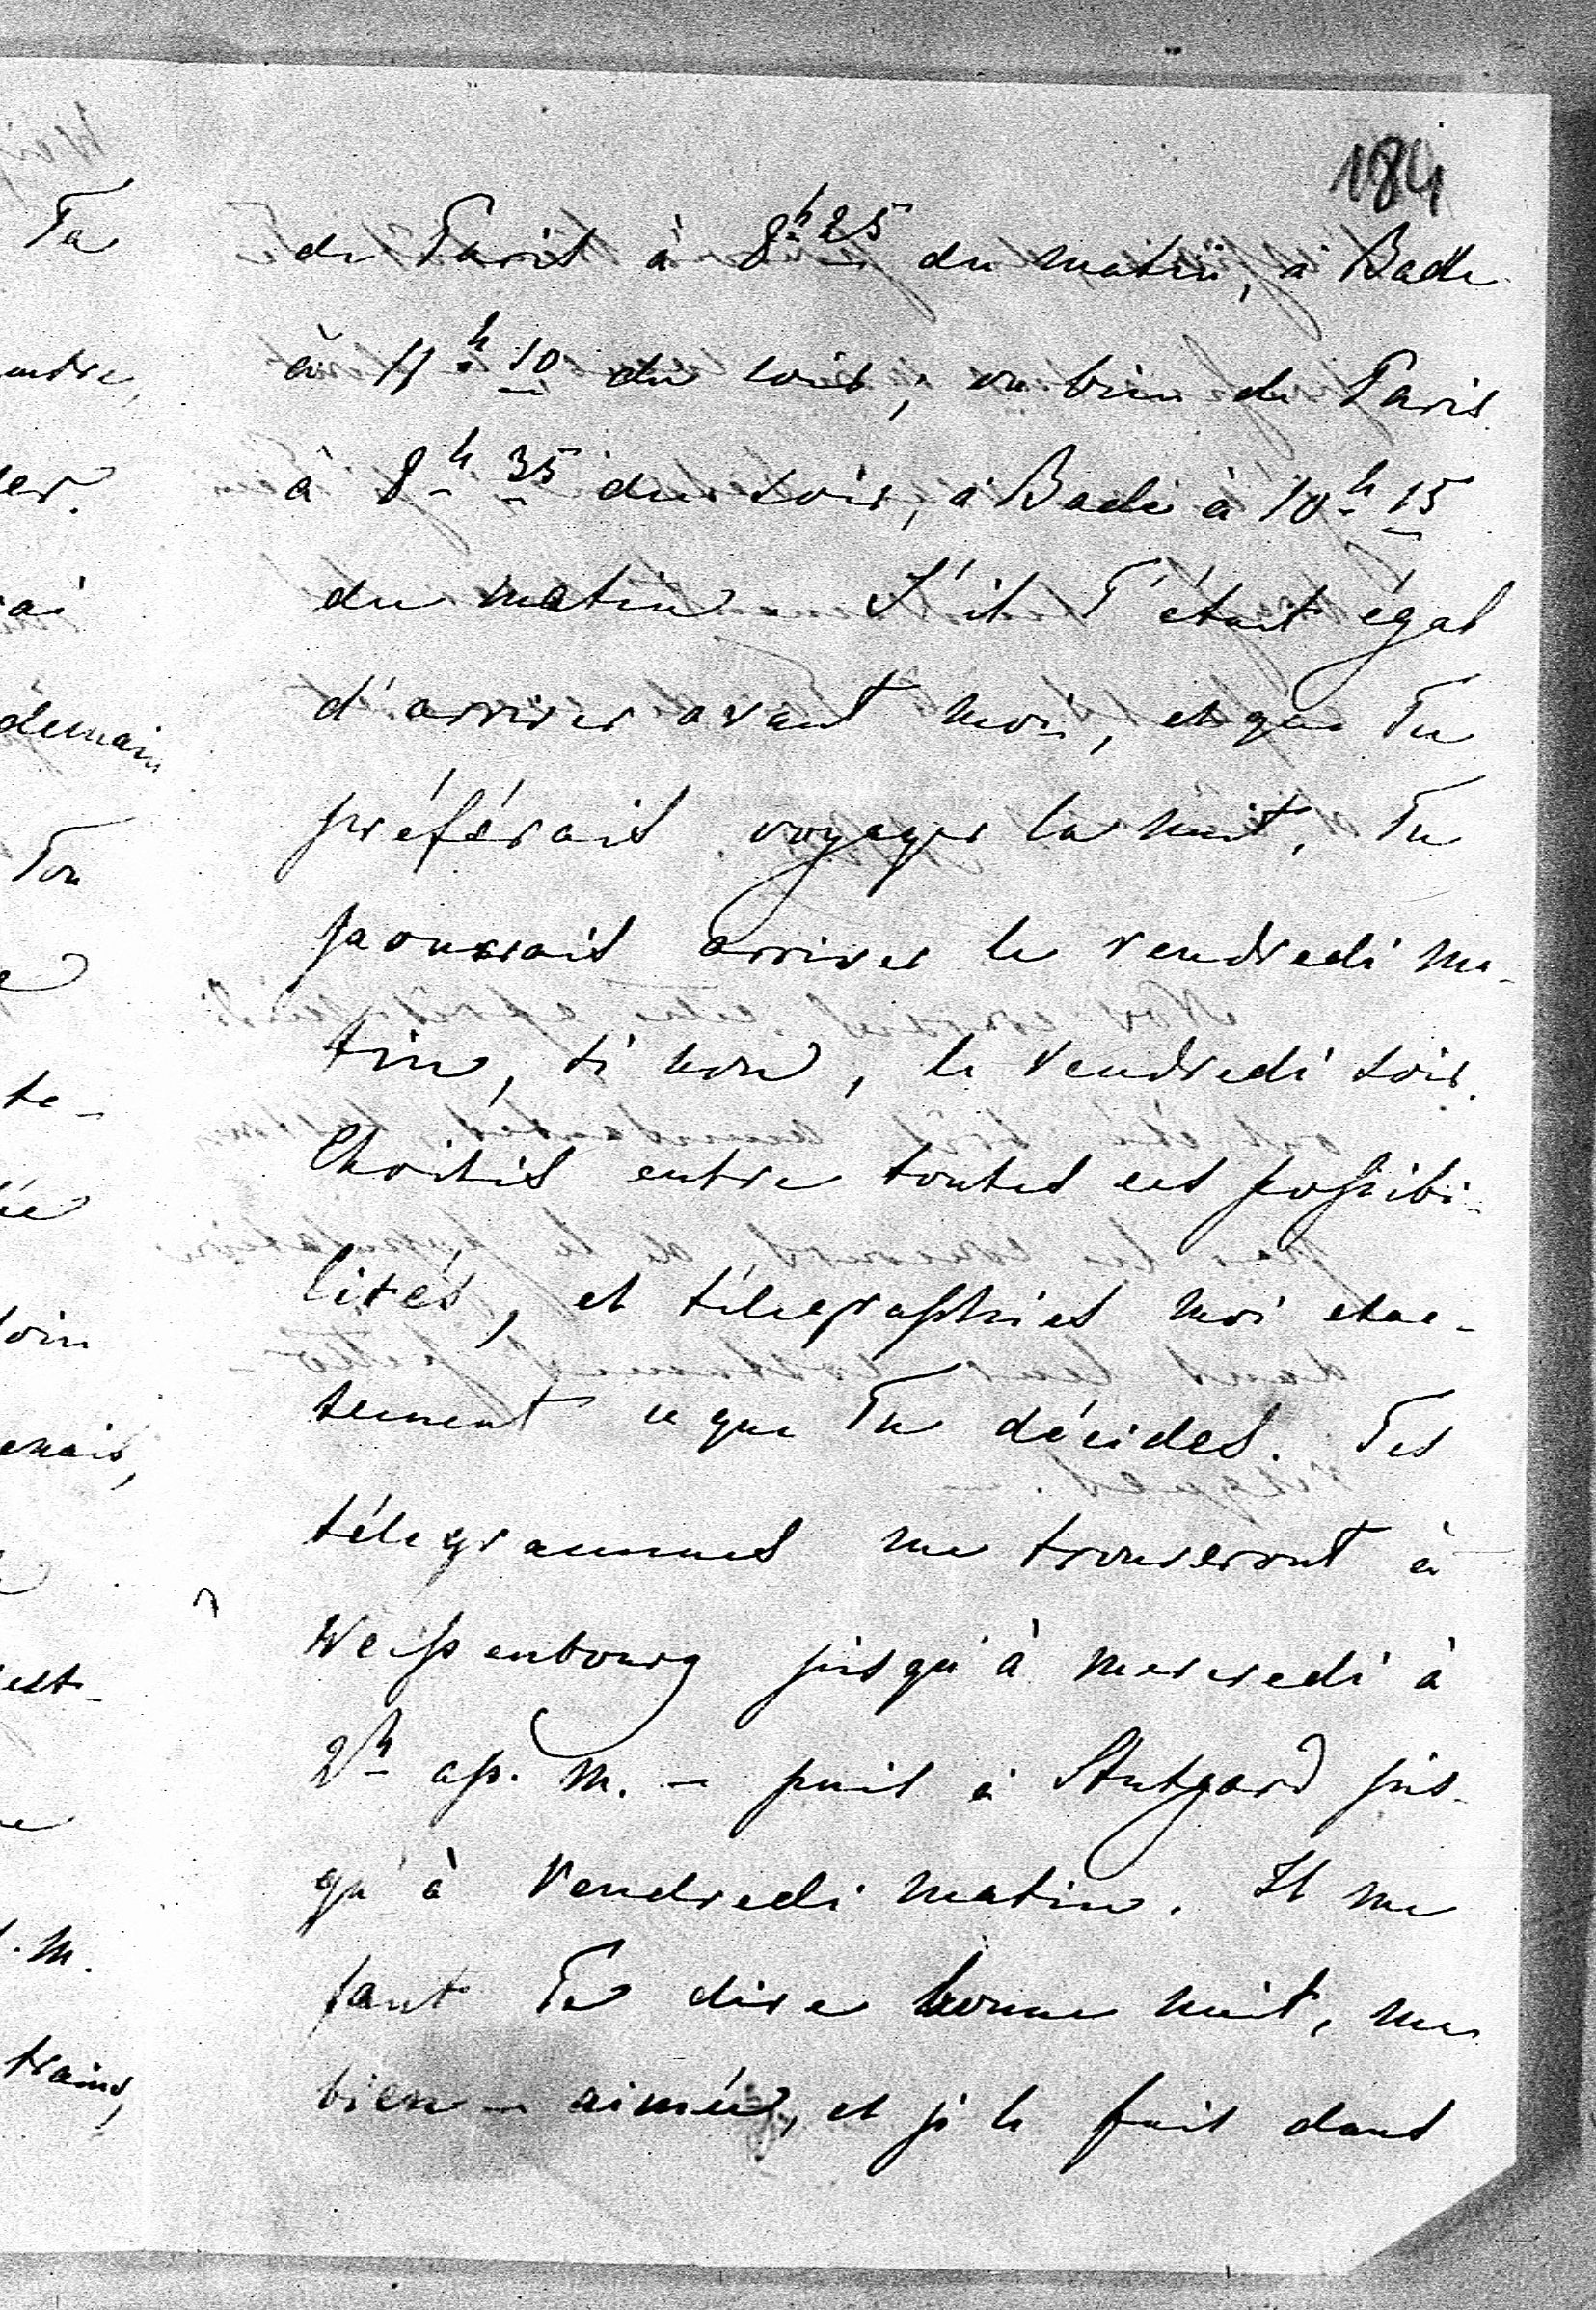 184
de Paris à 8h 25 du matin, à Bade
à 11h 10 du soir, ou bien de Paris
à 8h 35 du soir, à Bade à 10h 15
du matin S'il T'était égal
d'arriver avant moi, et que Tu
préférais voyager la nuit, Tu
pourrais arriver le vendredi ma-
tin, si non, le vendredi soir.
Choisis entre toutes ces possibi-
lités, et télégraphies moi exac-
tement ce que Tu décides. Tes
télégrammes me trouveront à
Weissenbourg jusqu'à mercredi à
2h ap. M. - puis à Stutgard jus-
qu'à Vendredi matin. Il me
faut Te dire bonne nuit, ma
bien-aimée, et je le fais dans
Ta
demain
Ton
trains,